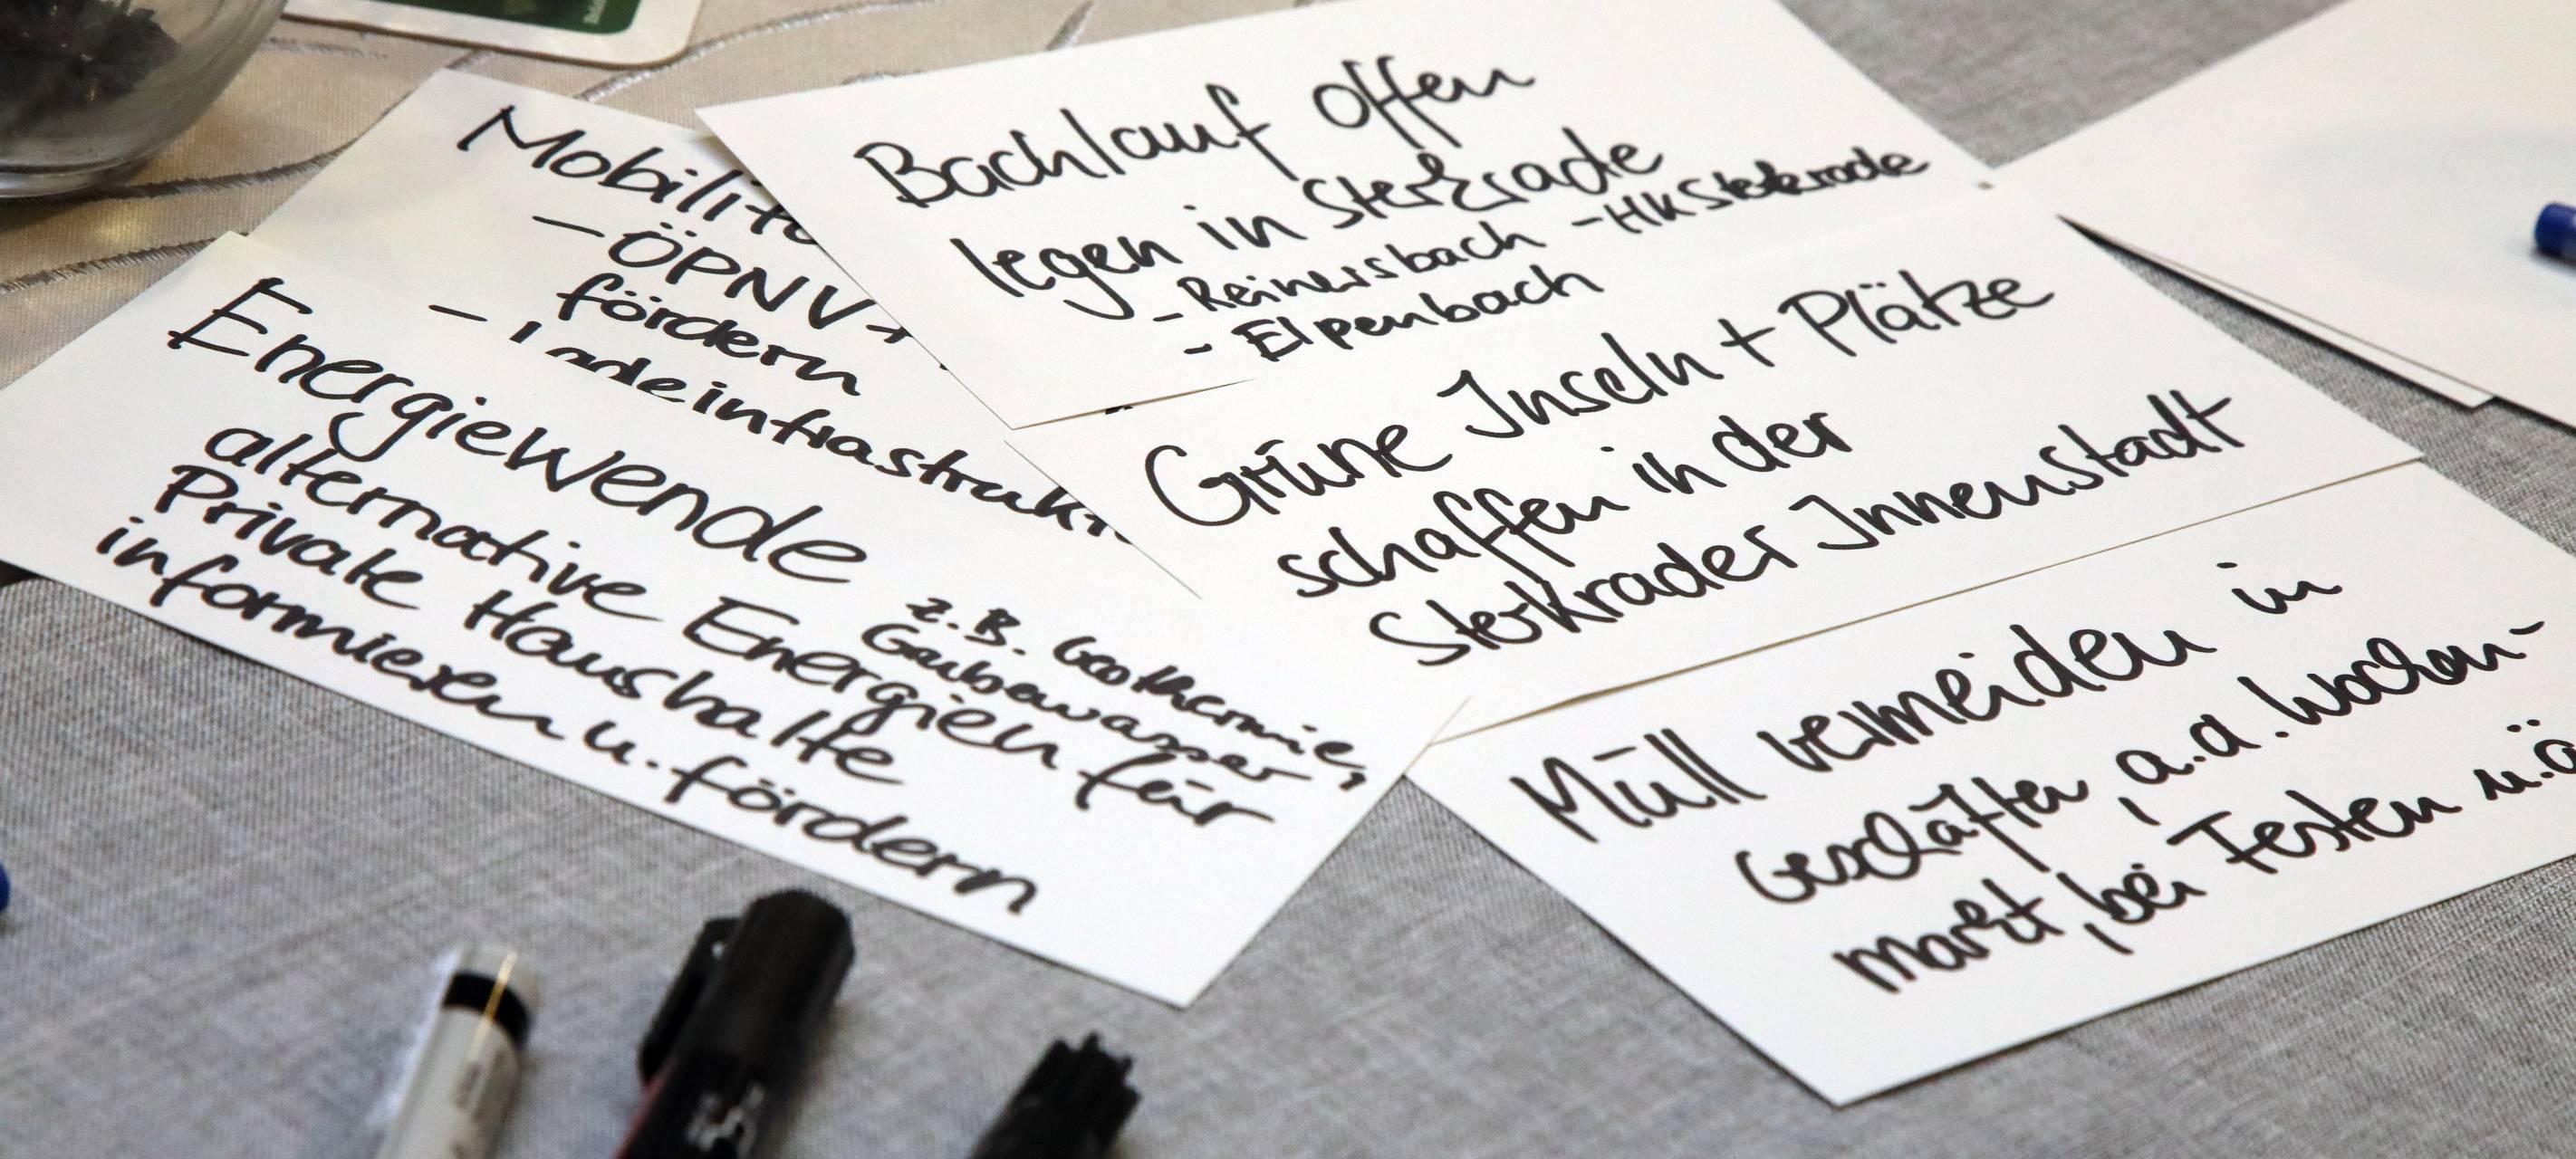 Mobilitä
- ÖPNV +
fördern
- Ladeinfrastrukt
Energiewende
z.B. Geothermie,
Grubenwasser
alternative Energien für
Private Haushalte
informieren u. fördern
Bachlauf offen
legen in Sterkrade
- Reinersbach - HK Sterkrade
- Elpenbach
Grüne Inseln + Plätze
schaffen in der
Sterkrader Innenstadt
Müll vermeiden in
Geschäften, a.d. Wochen-
markt, bei Festen u.ä